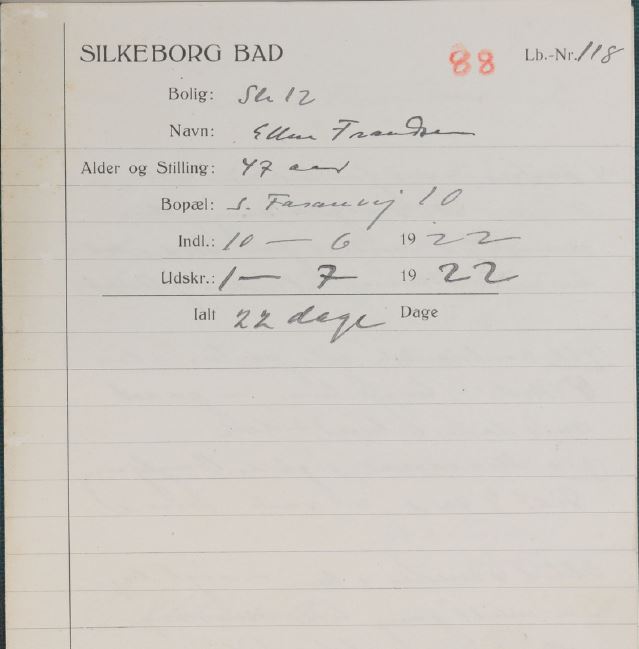 SILKEBORG BAD 88 Lb.-Nr. 118
Bolig: St 12
Navn: Ellen Frandsen
Alder og Stilling: 47 aar
Bopæl: S. Fasanvej 10
Indl.: 10 — 6 1922
Udskr.: 1 — 7 1922
Ialt 22 dage Dage